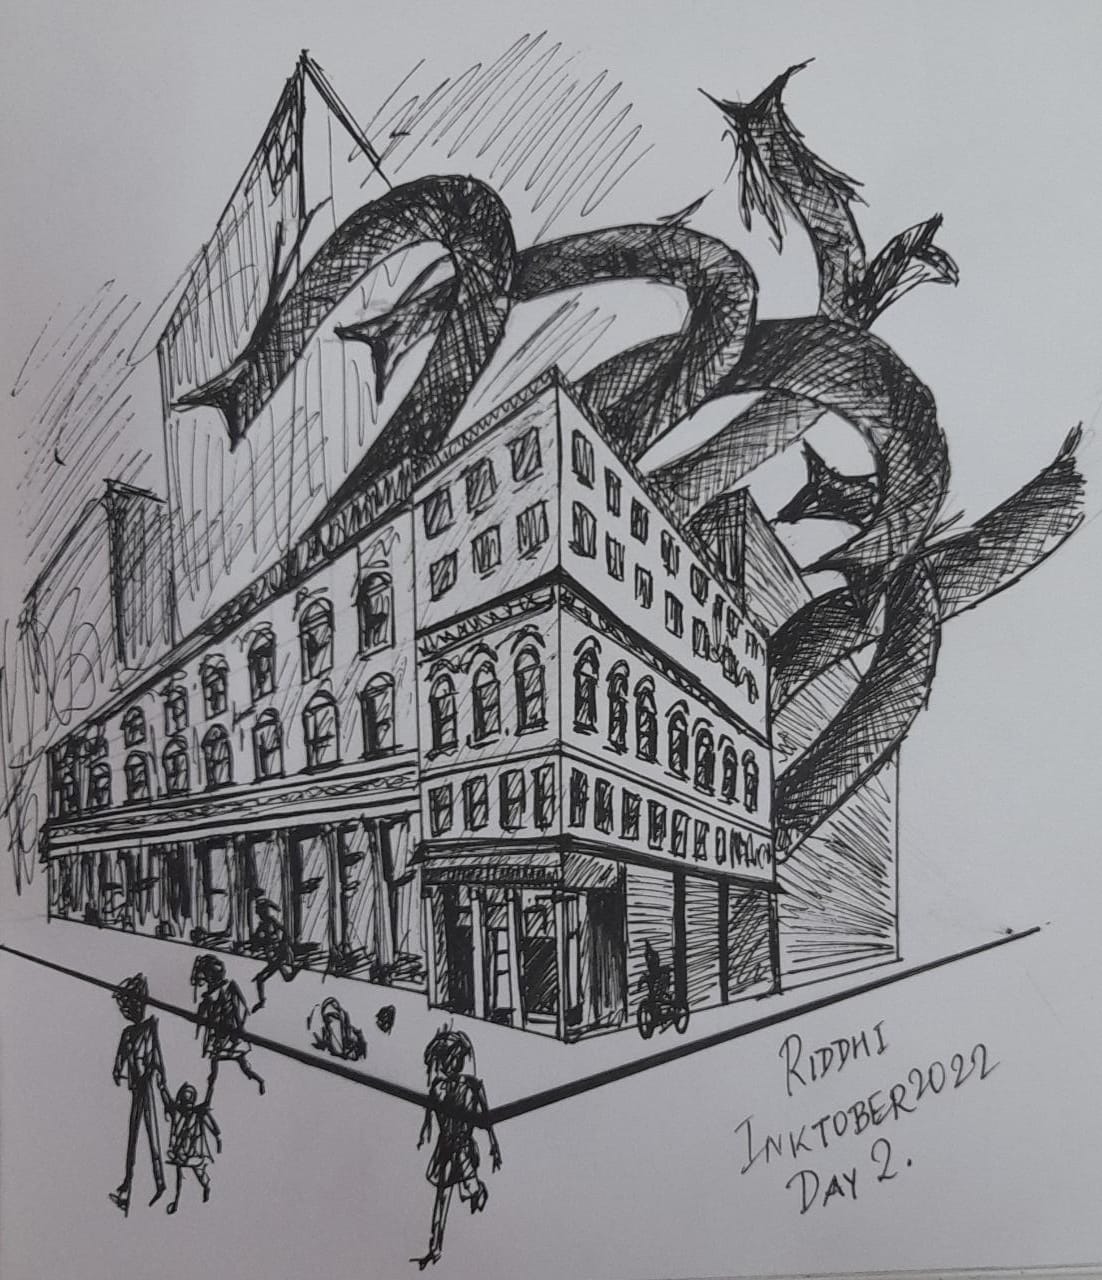 RIDDHI
INKTOBER2022
DAY 2.